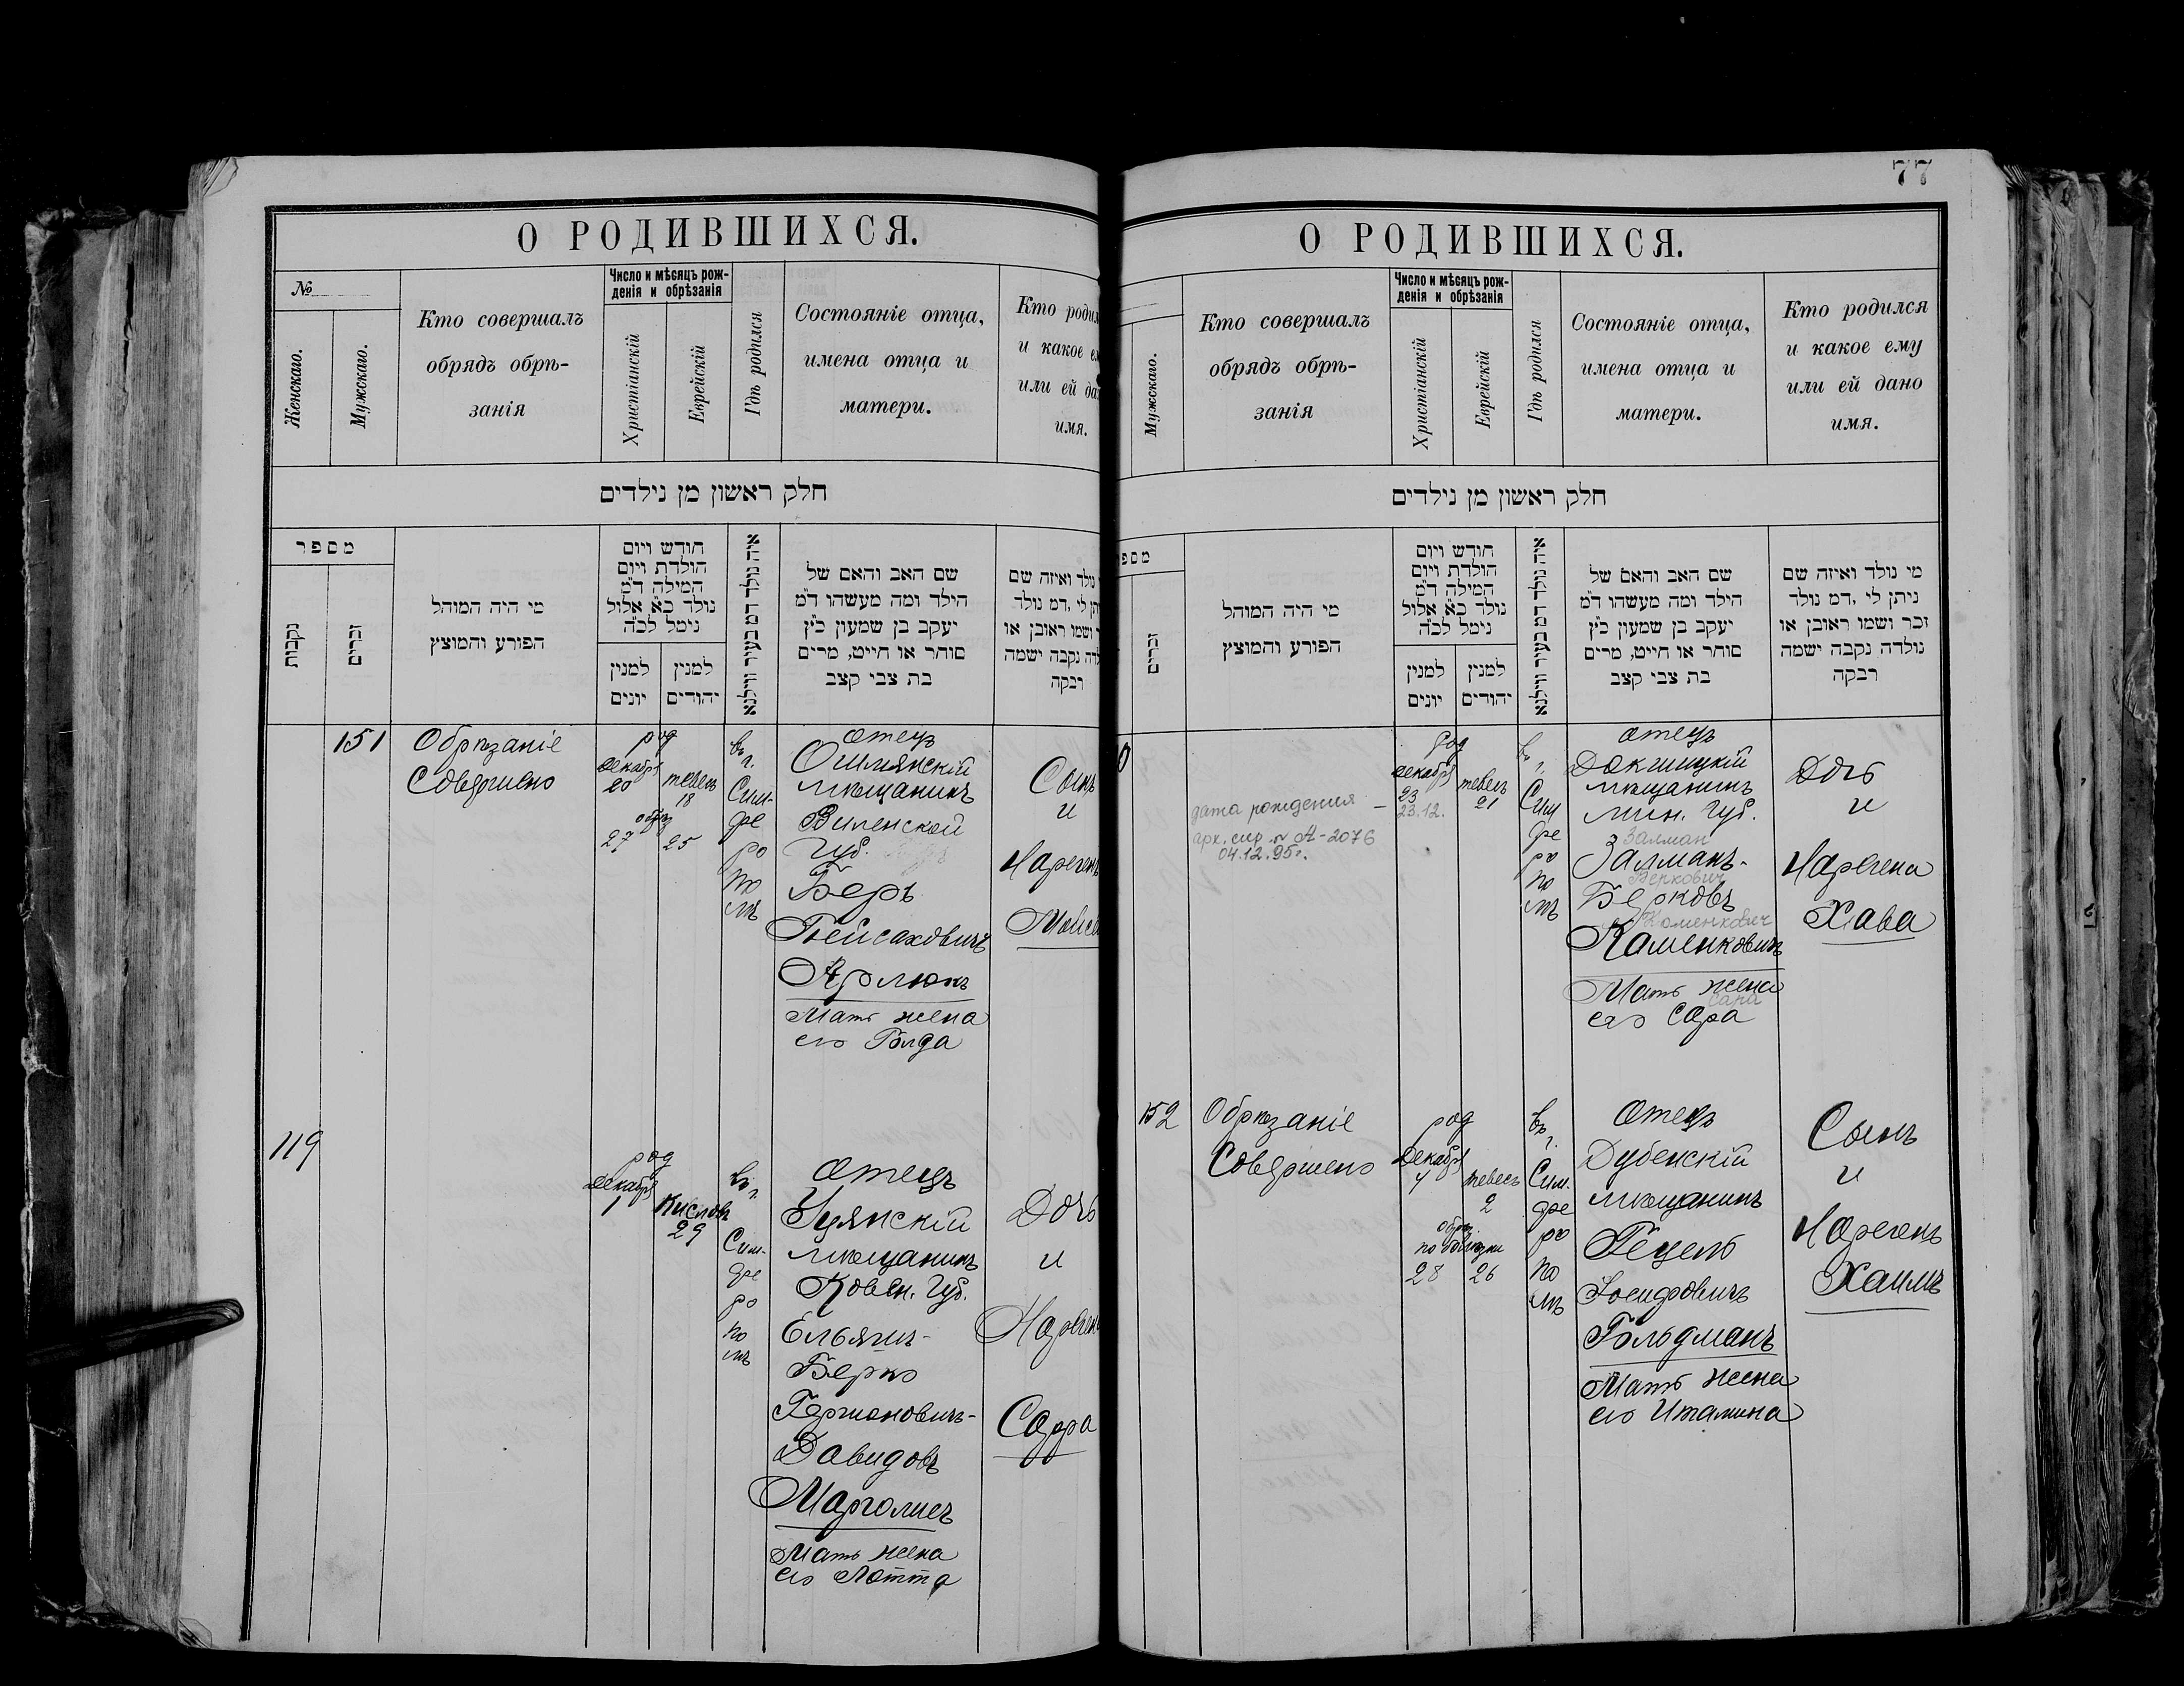 О РОДИВШИХСЯ.
№
Женскаго.
Мужскаго.
Кто совершалъ
обрядъ обрѣ-
занія
Число и мѣсяцъ рож-
денія и обрѣзанія
Христіанскій
Еврейскій
Гдѣ родился
Состояніе отца,
имена отца и
матери.
Кто роди
и какое е
или ей да
имя.
חלק ראשון מן נילדים
מספר
נקבות
זכרים
מי היה המוהל
הפורע והמוצץ
חודש ויום
הולדת ויום
המילה ד"מ
נולד כ"א אלול
נימל לכ"ה
למנין
יונים
למנין
יהודים
איה נולד דמ בעיר ווילנא
שם האב והאם של
הילד ומה מעשהו ד"מ
יעקב בן שמעון כ"ץ
סוחר או חייט, מרים
בת צבי קצב
נולד ואיזה שם
יתן לי, דמ נולד
ושמו ראובן או
לדה נקבה ישמה
רבקה
151
Обрѣзаніе
Совершено
род
Декабр
20
тевесъ
18
обрѣз
27
25
въ
г.
Сим-
фе
ро
по
лѣ
отецъ
Ошмянскій
мѣщанинъ
Виленской
Губ.
Беръ
Пейсаховичъ
Арлюкъ
Мать жена
его Голда
Сынъ
и
Нареченъ
Моисе
119
род
Декабр
1
Кислевъ
29
въ
г.
Сим-
фе
ро
по
лѣ
отецъ
Уцянскій
мѣщанинъ
Ковен. Губ.
Ельяшъ-
Берко
Гермоновичъ-
Давидовъ
Марголисъ
Мать жена
его Лотта
Дочь
и
Наречен
Сарра
77
О РОДИВШИХСЯ.
Мужскаго.
Кто совершалъ
обрядъ обрѣ-
занія
Число и мѣсяцъ рож-
денія и обрѣзанія
Христіанскій
Еврейскій
Гдѣ родился
Состояніе отца,
имена отца и
матери.
Кто родился
и какое ему
или ей дано
имя.
חלק ראשון מן נילדים
מספ
זכרים
מי היה המוהל
הפורע והמוצץ
חודש ויום
הולדת ויום
המילה ד"מ
נולד כ"א אלול
נימל לכ"ה
למנין
יונים
למנין
יהודים
איה נולד דמ בעיר ווילנא
שם האב והאם של
הילד ומה מעשהו ד"מ
יעקב בן שמעון כ"ץ
סוחר או חייט, מרים
בת צבי קצב
מי נולד ואיזה שם
ניתן לי, דמ נולד
זכר ושמו ראובן או
נולדה נקבה ישמה
רבקה
0
дата рождения —
23.12.
арх. спр. № А-2076
04.12.95г.
род
Декабр
23
тевесъ
21
въ
г.
Сим
фе
ро
по
лѣ
отецъ
Докшицкій
мѣщанинъ
мин. Губ.
Залман
Залманъ-
Беркович
Берковъ
Каменкович
Каменковичъ
Мать жена
Сара
его Сара
Дочь
и
Наречена
Хава
152
Обрѣзаніе
Совершено
род
Декабр
4
тевесъ
2
обрѣз.
по болѣзни
28
26
въ
г.
Сим.
фе
ро
по
лѣ
отецъ
Дубенскій
мѣщанинъ
Гецель
Іосифовичъ
Гольдманъ
Мать жена
его Италина
Сынъ
и
Нареченъ
Хаимъ